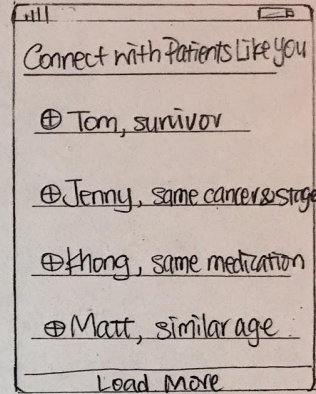 Connect with Patients Like You
⊕ Tom, survivor
⊕ Jenny, same cancer & stage
⊕ Khong, same medication
⊕ Matt, similar age
Load More